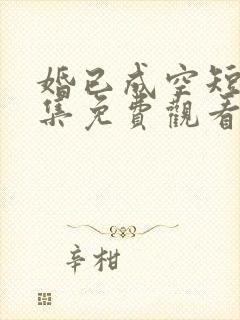 婚已成空短
集免費觀看
辛柑